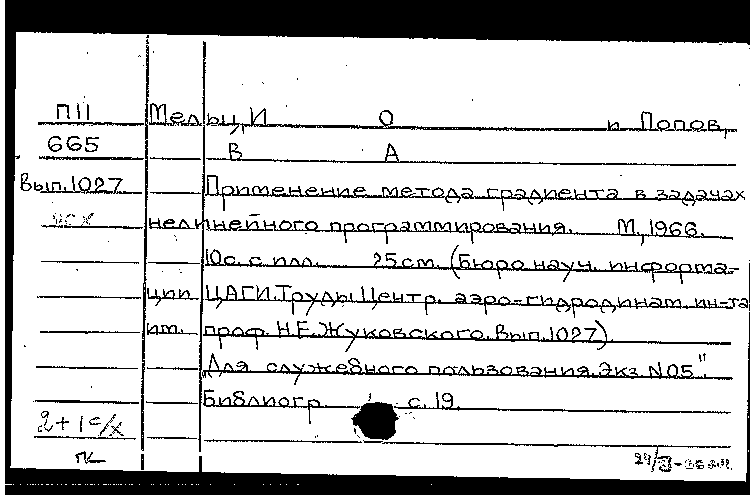 П11 Мельц, И О и Попов,
665 В А
Вып.1027 Применение метода градиента в задачах
нелинейного программирования. М., 1966.
10с. с илл. 25см. (Бюро науч. информа-
ции ЦАГИ. Труды Центр. аэро-гидродинам. ин-та
им. проф. Н.Е.Жуковского. Вып.1027).
„Для служебного пользования. Экз. №05".
Библиогр. с. 19.
2+1 с/х